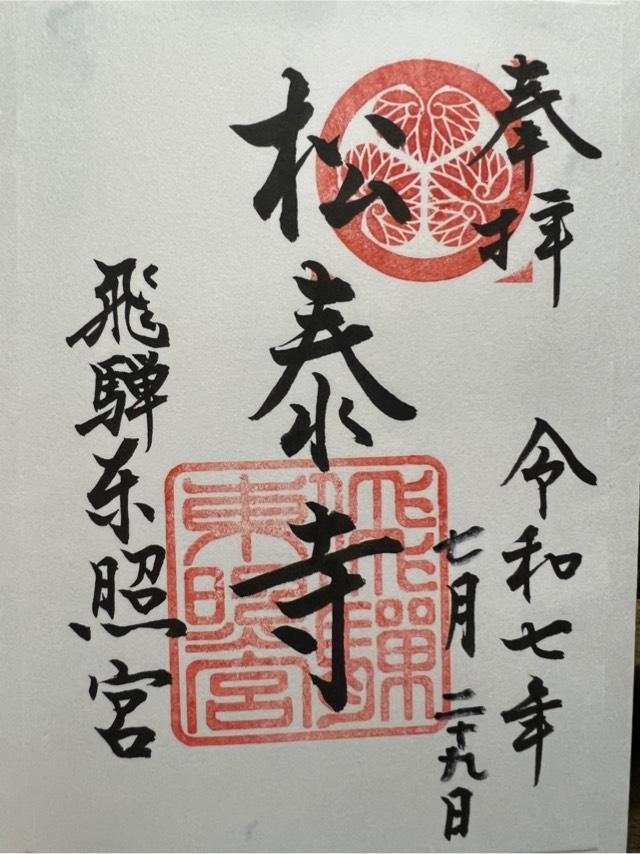 奉拝
令和七年
七月二十九日
松泰寺
飛騨東照宮
飛騨
東照宮